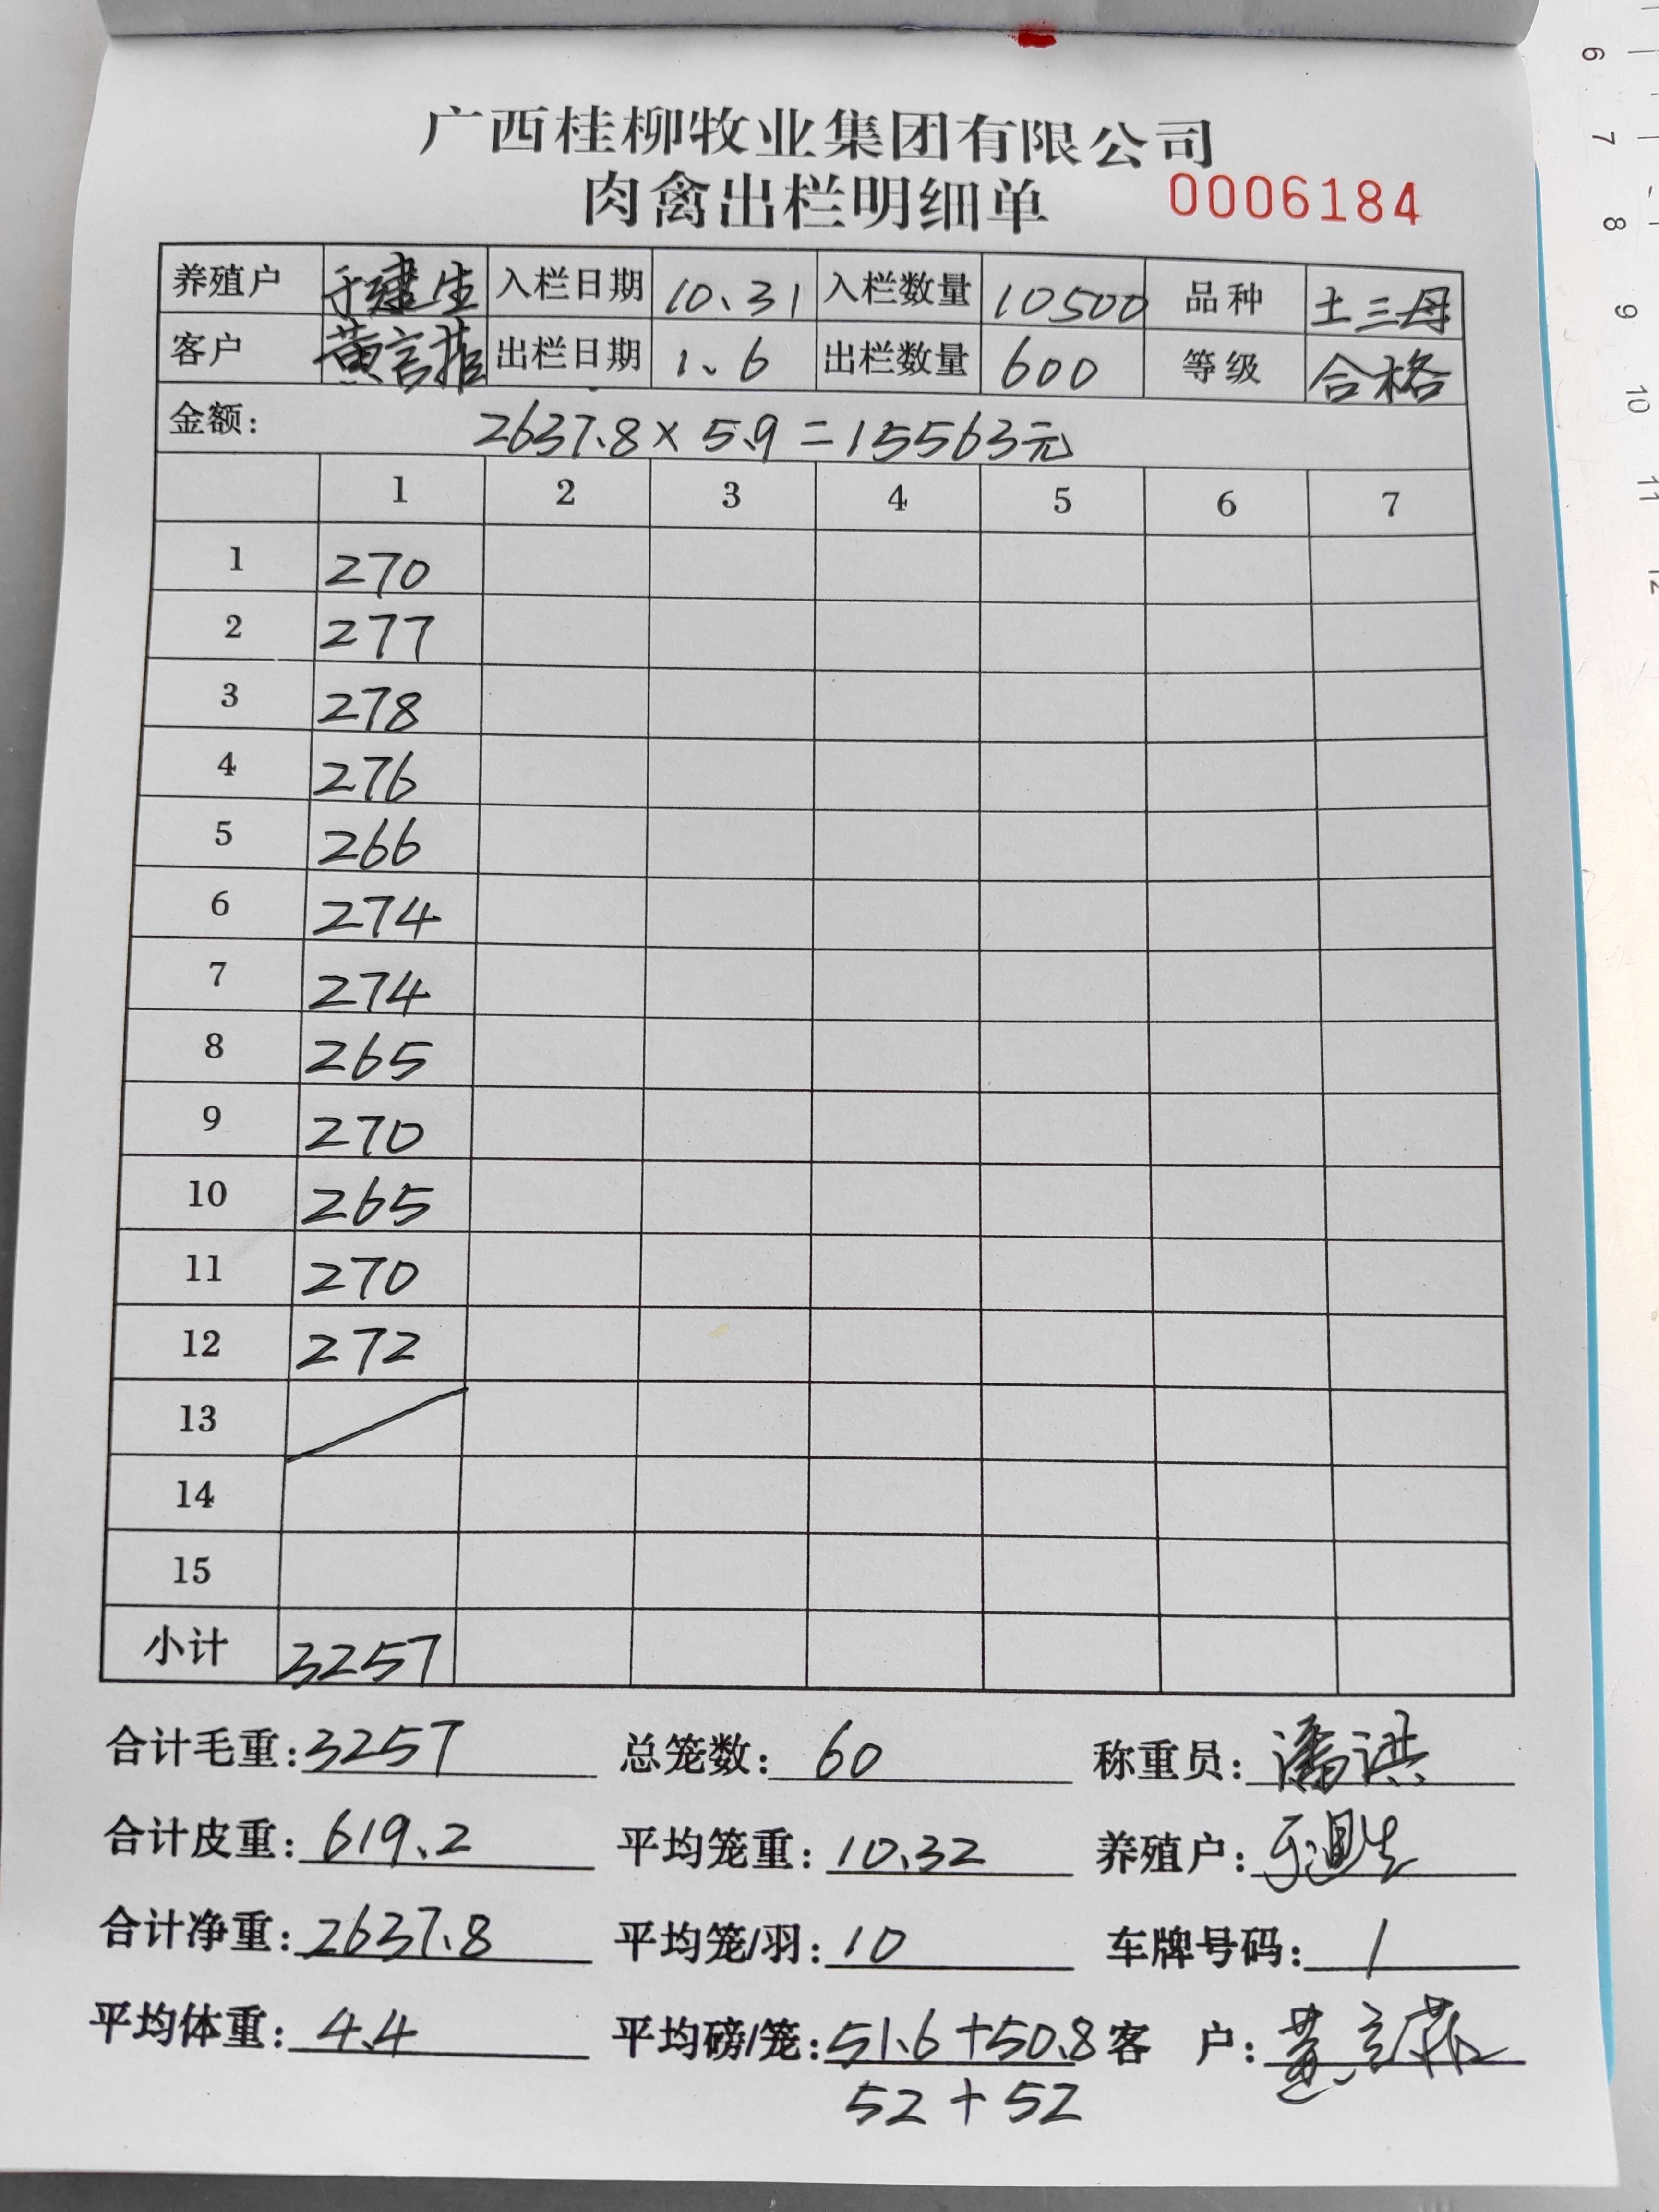 广西桂柳牧业集团有限公司
肉禽出栏明细单 0006184
养殖户 于建生 入栏日期 10.31 入栏数量 10500 品种 土三母
客户 黄言 出栏日期 1.6 出栏数量 600 等级 合格
金额: 2637.8×5.9=15563元
1 2 3 4 5 6 7
1 270
2 277
3 278
4 276
5 266
6 274
7 274
8 265
9 270
10 265
11 270
12 272
13
14
15
小计 3257
合计毛重: 3257 总笼数: 60 称重员: 潘洪
合计皮重: 619.2 平均笼重: 10.32 养殖户: 于建生
合计净重: 2637.8 平均笼/羽: 10 车牌号码: /
平均体重: 4.4 平均磅/笼: 51.6+50.8 客户: 黄言
52+52
6
7
8
9
10
11
12